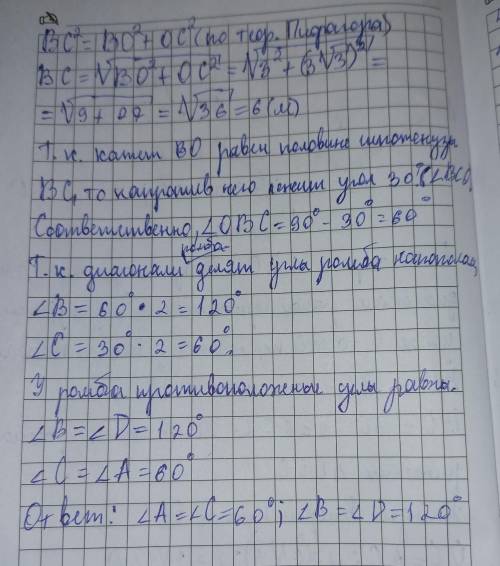 BC² = BO² + OC² (по теор. Пифагора)
BC = √BO² + OC² = √3² + (3√3)² =
= √9 + 27 = √36 = 6 (м)
Т. к. катет BO равен половине гипотенузы
BC, то напротив него лежит угол 30° (∠BCO)
Соответственно, ∠OBC = 90° - 30° = 60°
ромба
Т. к. диагонали делят углы ромба напополам,
∠B = 60° · 2 = 120°
∠C = 30° · 2 = 60°.
У ромба противоположные углы равны.
∠B = ∠D = 120°
∠C = ∠A = 60°
Ответ: ∠A = ∠C = 60°; ∠B = ∠D = 120°